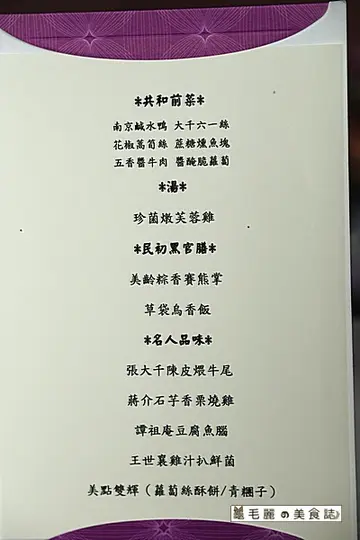 *共和前菜*
南京鹹水鴨 大千六一絲
花椒萵筍絲 蔗糖燻魚塊
五香醬牛肉 醬醃脆蘿蔔
*湯*
珍菌燉芙蓉雞
*民初黑官膳*
美齡粽香賽熊掌
草袋烏香飯
*名人品味*
張大千陳皮煨牛尾
蔣介石芋香栗燒雞
譚祖庵豆腐魚腦
王世襄雞汁扒鮮菌
美點雙輝（蘿蔔絲酥餅/青糰子）
毛麗の美食誌